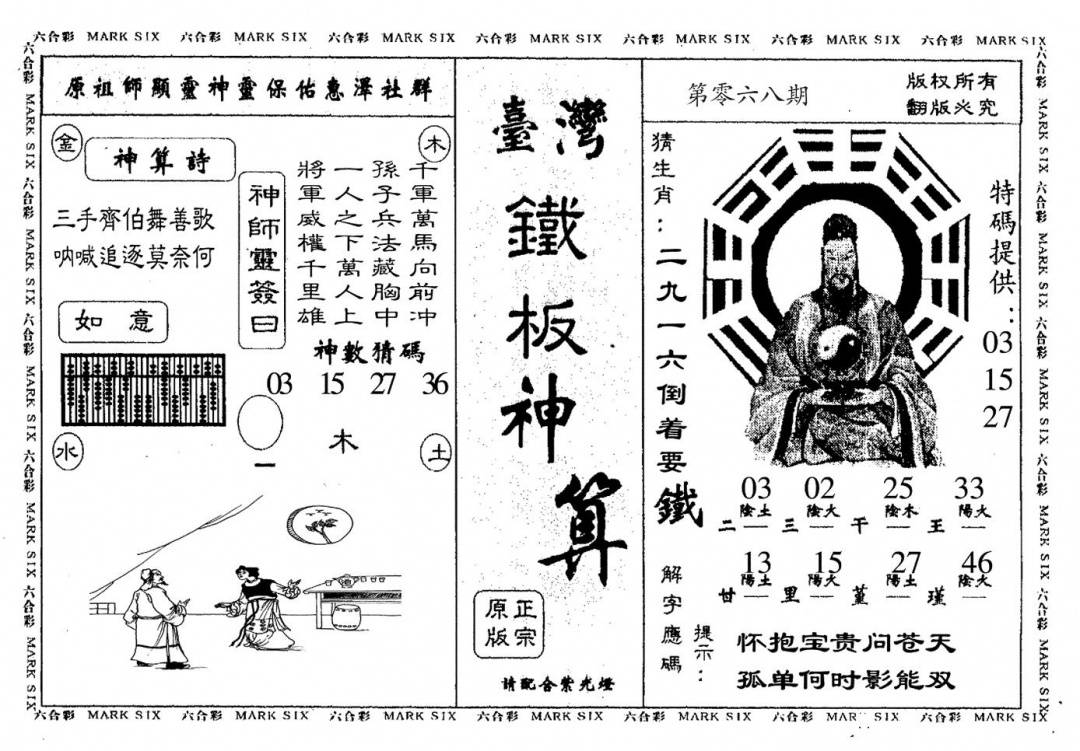 六合彩 MARK SIX 六合彩 MARK SIX 六合彩 MARK SIX 六合彩 MARK SIX 六合彩 MARK SIX 六合彩 MARK SIX 六合彩 MARK SIX
六合彩 MARK SIX 六合彩 MARK SIX 六合彩 MARK SIX 六合彩 MARK SIX 六合彩 MARK SIX
原祖師顯靈神靈保佑惠澤社群
金
木
神算詩
三手齊伯舞善歌
呐喊追逐莫奈何
如意
神師靈簽曰
千軍萬馬向前冲
孫子兵法藏胸中
一人之下萬人上
將軍威權千里雄
神數猜碼
03 15 27 36
木
水
土
一
臺灣
鐵板神算
正宗
原版
請配合紫光燈
第零六八期
版权所有
翻版必究
猜生肖：二九一六倒着要鐵
特碼提供：
03
15
27
03 02 25 33
陰土 陰火 陰木 陽火
二 三 干 王
13 15 27 46
陽土 陽火 陽土 陰火
甘 里 堇 瑾
解字應碼
提示：
怀抱宝贵问苍天
孤单何时影能双
六合彩 MARK SIX 六合彩 MARK SIX 六合彩 MARK SIX 六合彩 MARK SIX 六合彩 MARK SIX
六合彩 MARK SIX 六合彩 MARK SIX 六合彩 MARK SIX 六合彩 MARK SIX 六合彩 MARK SIX 六合彩 MARK SIX 六合彩 MARK SIX